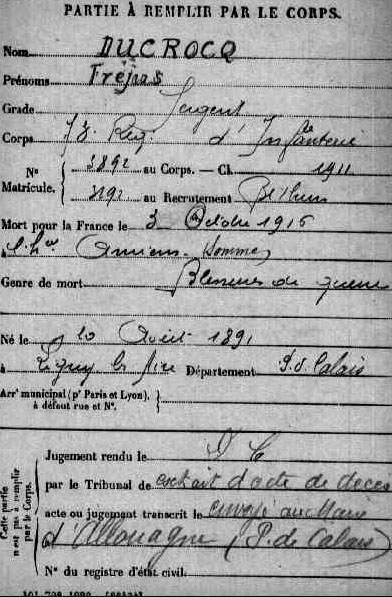 PARTIE À REMPLIR PAR LE CORPS.
Nom DUCROCQ
Prénoms Fréjus
Grade Sergent
Corps 73e Reg. d'Infanterie
N° Matricule. { 3892 au Corps. — Cl. 1911
au Recrutement Béthune
Mort pour la France le 3 Octobre 1916
à Amiens (Somme)
Genre de mort Blessures de guerre
Né le 10 Août 1891
à Ligny les Aire Département P. d. Calais
Arrt municipal (pr Paris et Lyon), à défaut rue et N°. }
Cette partie n'est pas à remplir par le Corps. {
Jugement rendu le
par le Tribunal de extrait d'acte de décès
acte ou jugement transcrit le envoyé au Maire
d'Allouagne (P. de Calais)
N° du registre d'état civil